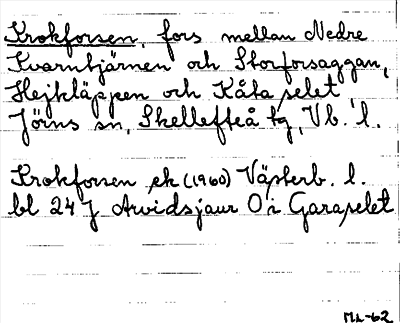 Krokforsen, fors mellan Nedre
Kvarntjärnen och Storforsaggan,
Hejkläppen och Kåtaselet
Jörns sn, Skellefteå tg, Vb. l.
Krokforsen ek (1960) Västerb. l.
bl 24 J Arvidsjaur O i Garaselet
ML-62